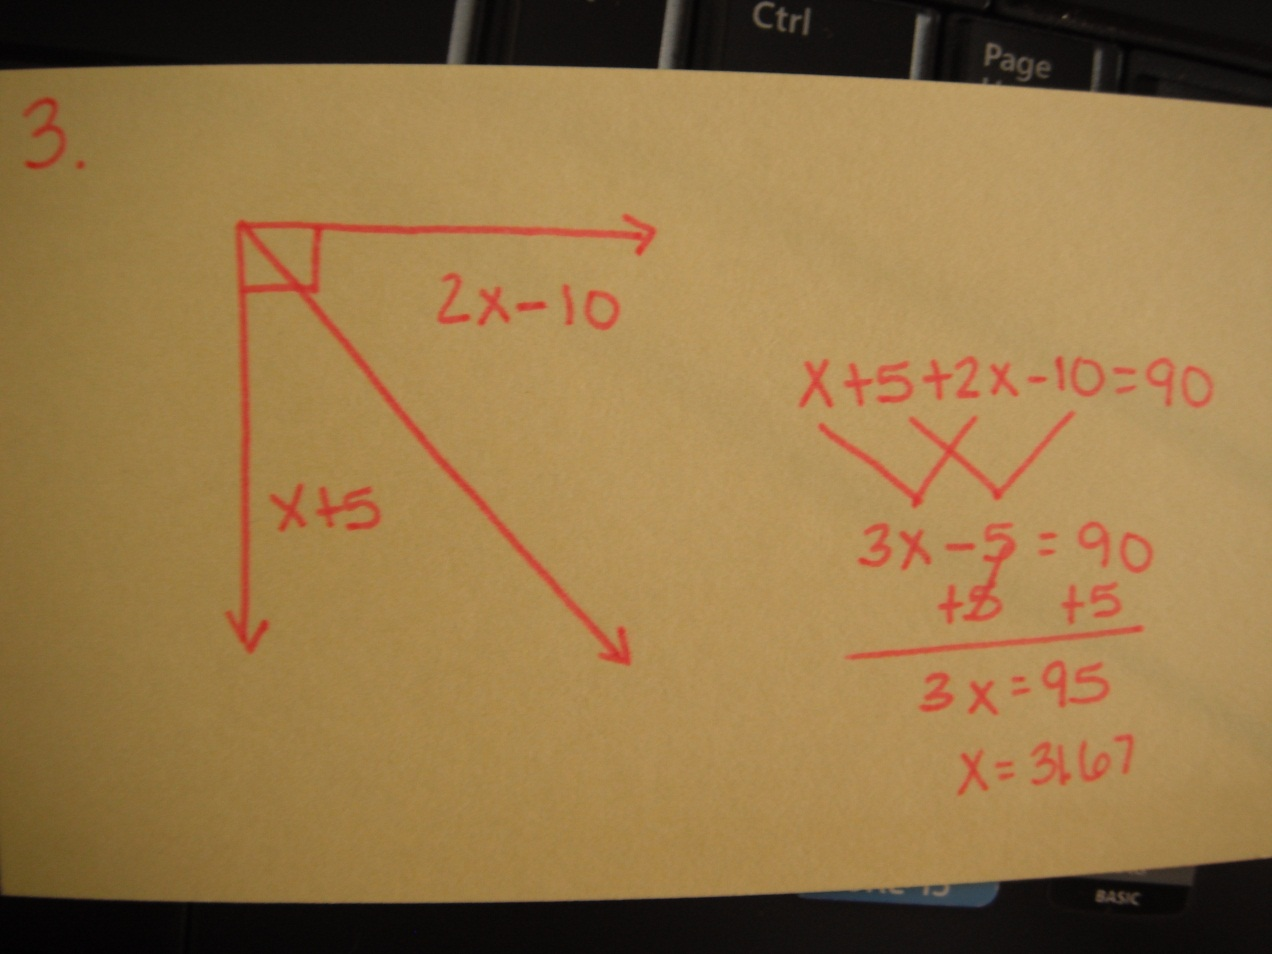 Ctrl
Page
3.
2x-10
x+5
x+5+2x-10=90
3x-5=90
+5 +5
3x=95
x=31.67
BASIC